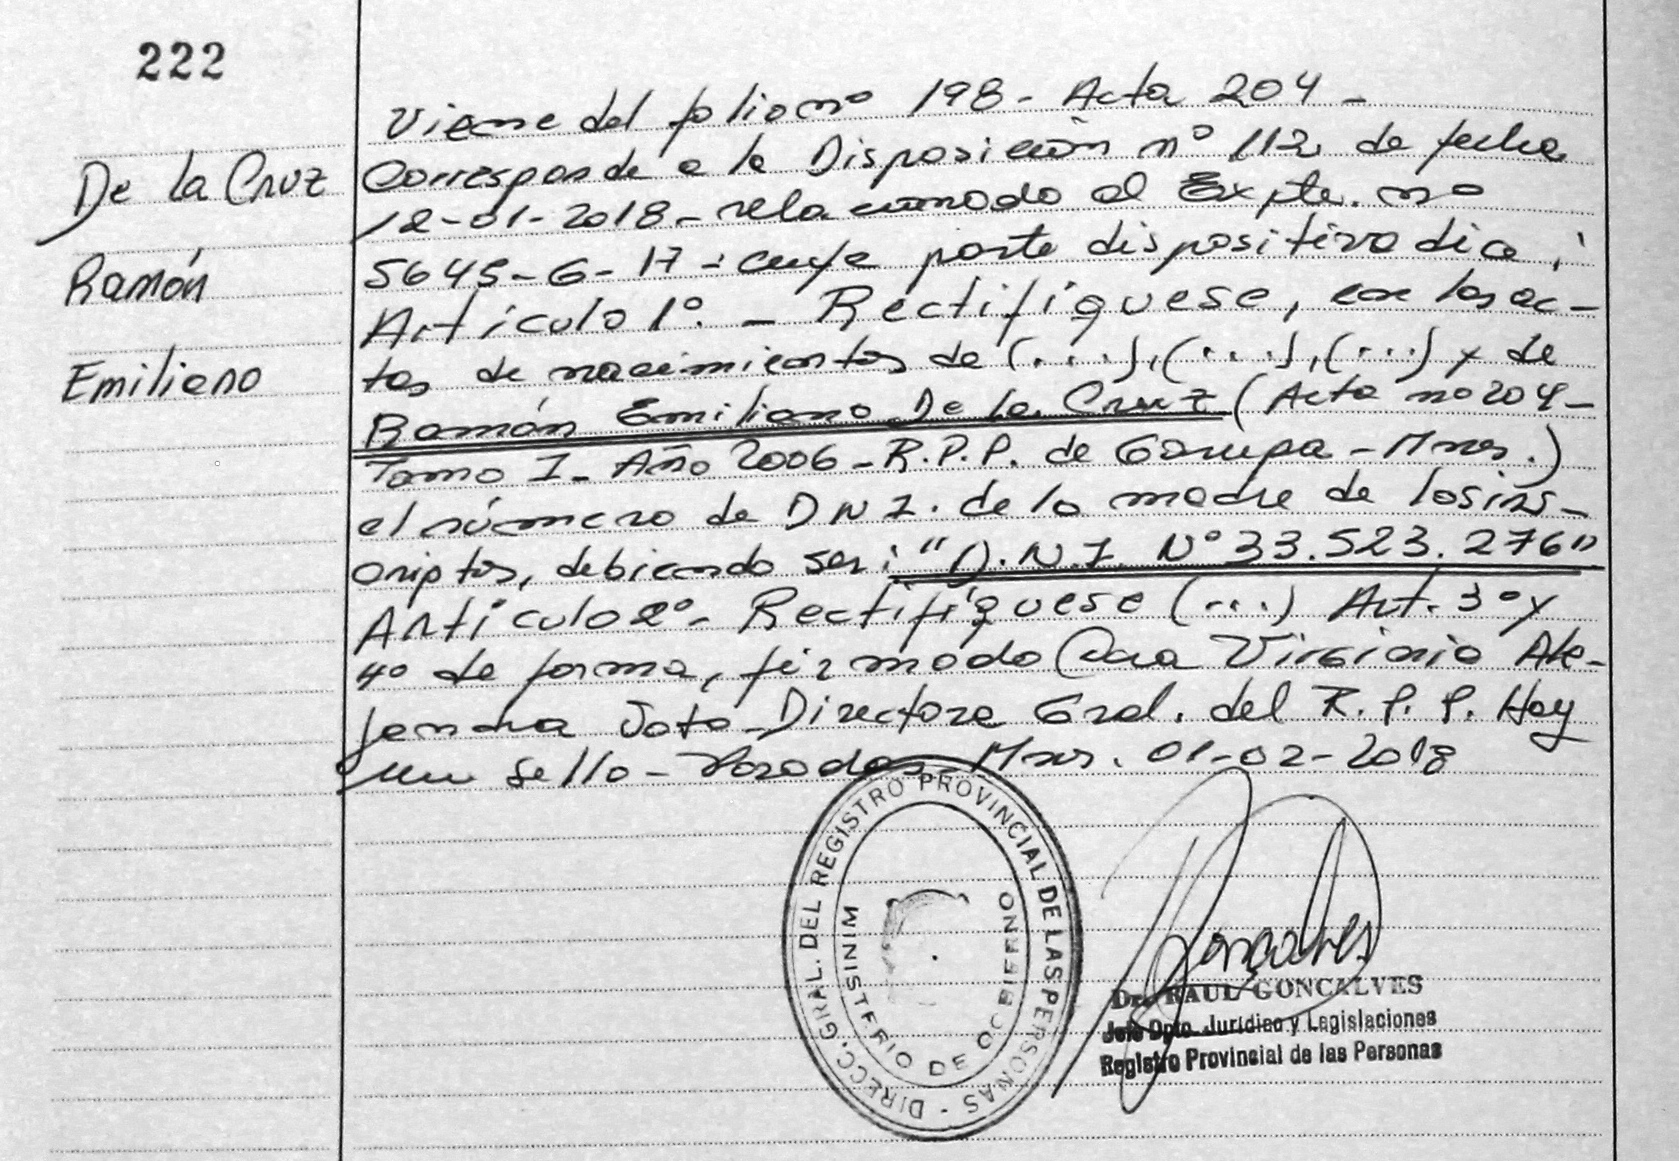 222
De la Cruz
Ramón
Emiliano
Viene del folio nº 198 - Acta 204 -
Corresponde a la Disposición nº 112 de fecha
12-01-2018 - relacionado al Expte. nº
5645-G-17 - cuya parte dispositiva dice:
Artículo 1º. - Rectifíquese, en las ac-
tas de nacimientos de (...), (...), (...) y de
Ramón Emiliano De la Cruz (Acta nº 204 -
Tomo I - Año 2006 - R.P.P. de Garupa - Mnes.)
el número de DNI. de la madre de los ins-
criptos, debiendo ser: "D.N.I. Nº 33.523.276"
Artículo 2º - Rectifíquese (...) Art. 3º y
4º de forma, firmado Dra Virginia Ale-
jandra Jota - Directora Gral. del R.P.P. Hay
un sello - Posadas Mnes. 01-02-2018
DIRECC. GRAL. DEL REGISTRO PROVINCIAL DE LAS PERSONAS -
MINISTERIO DE GOBIERNO
Goncalves
Dr. RAUL GONCALVES
Jefe Dpto. Jurídico y Legislaciones
Registro Provincial de las Personas